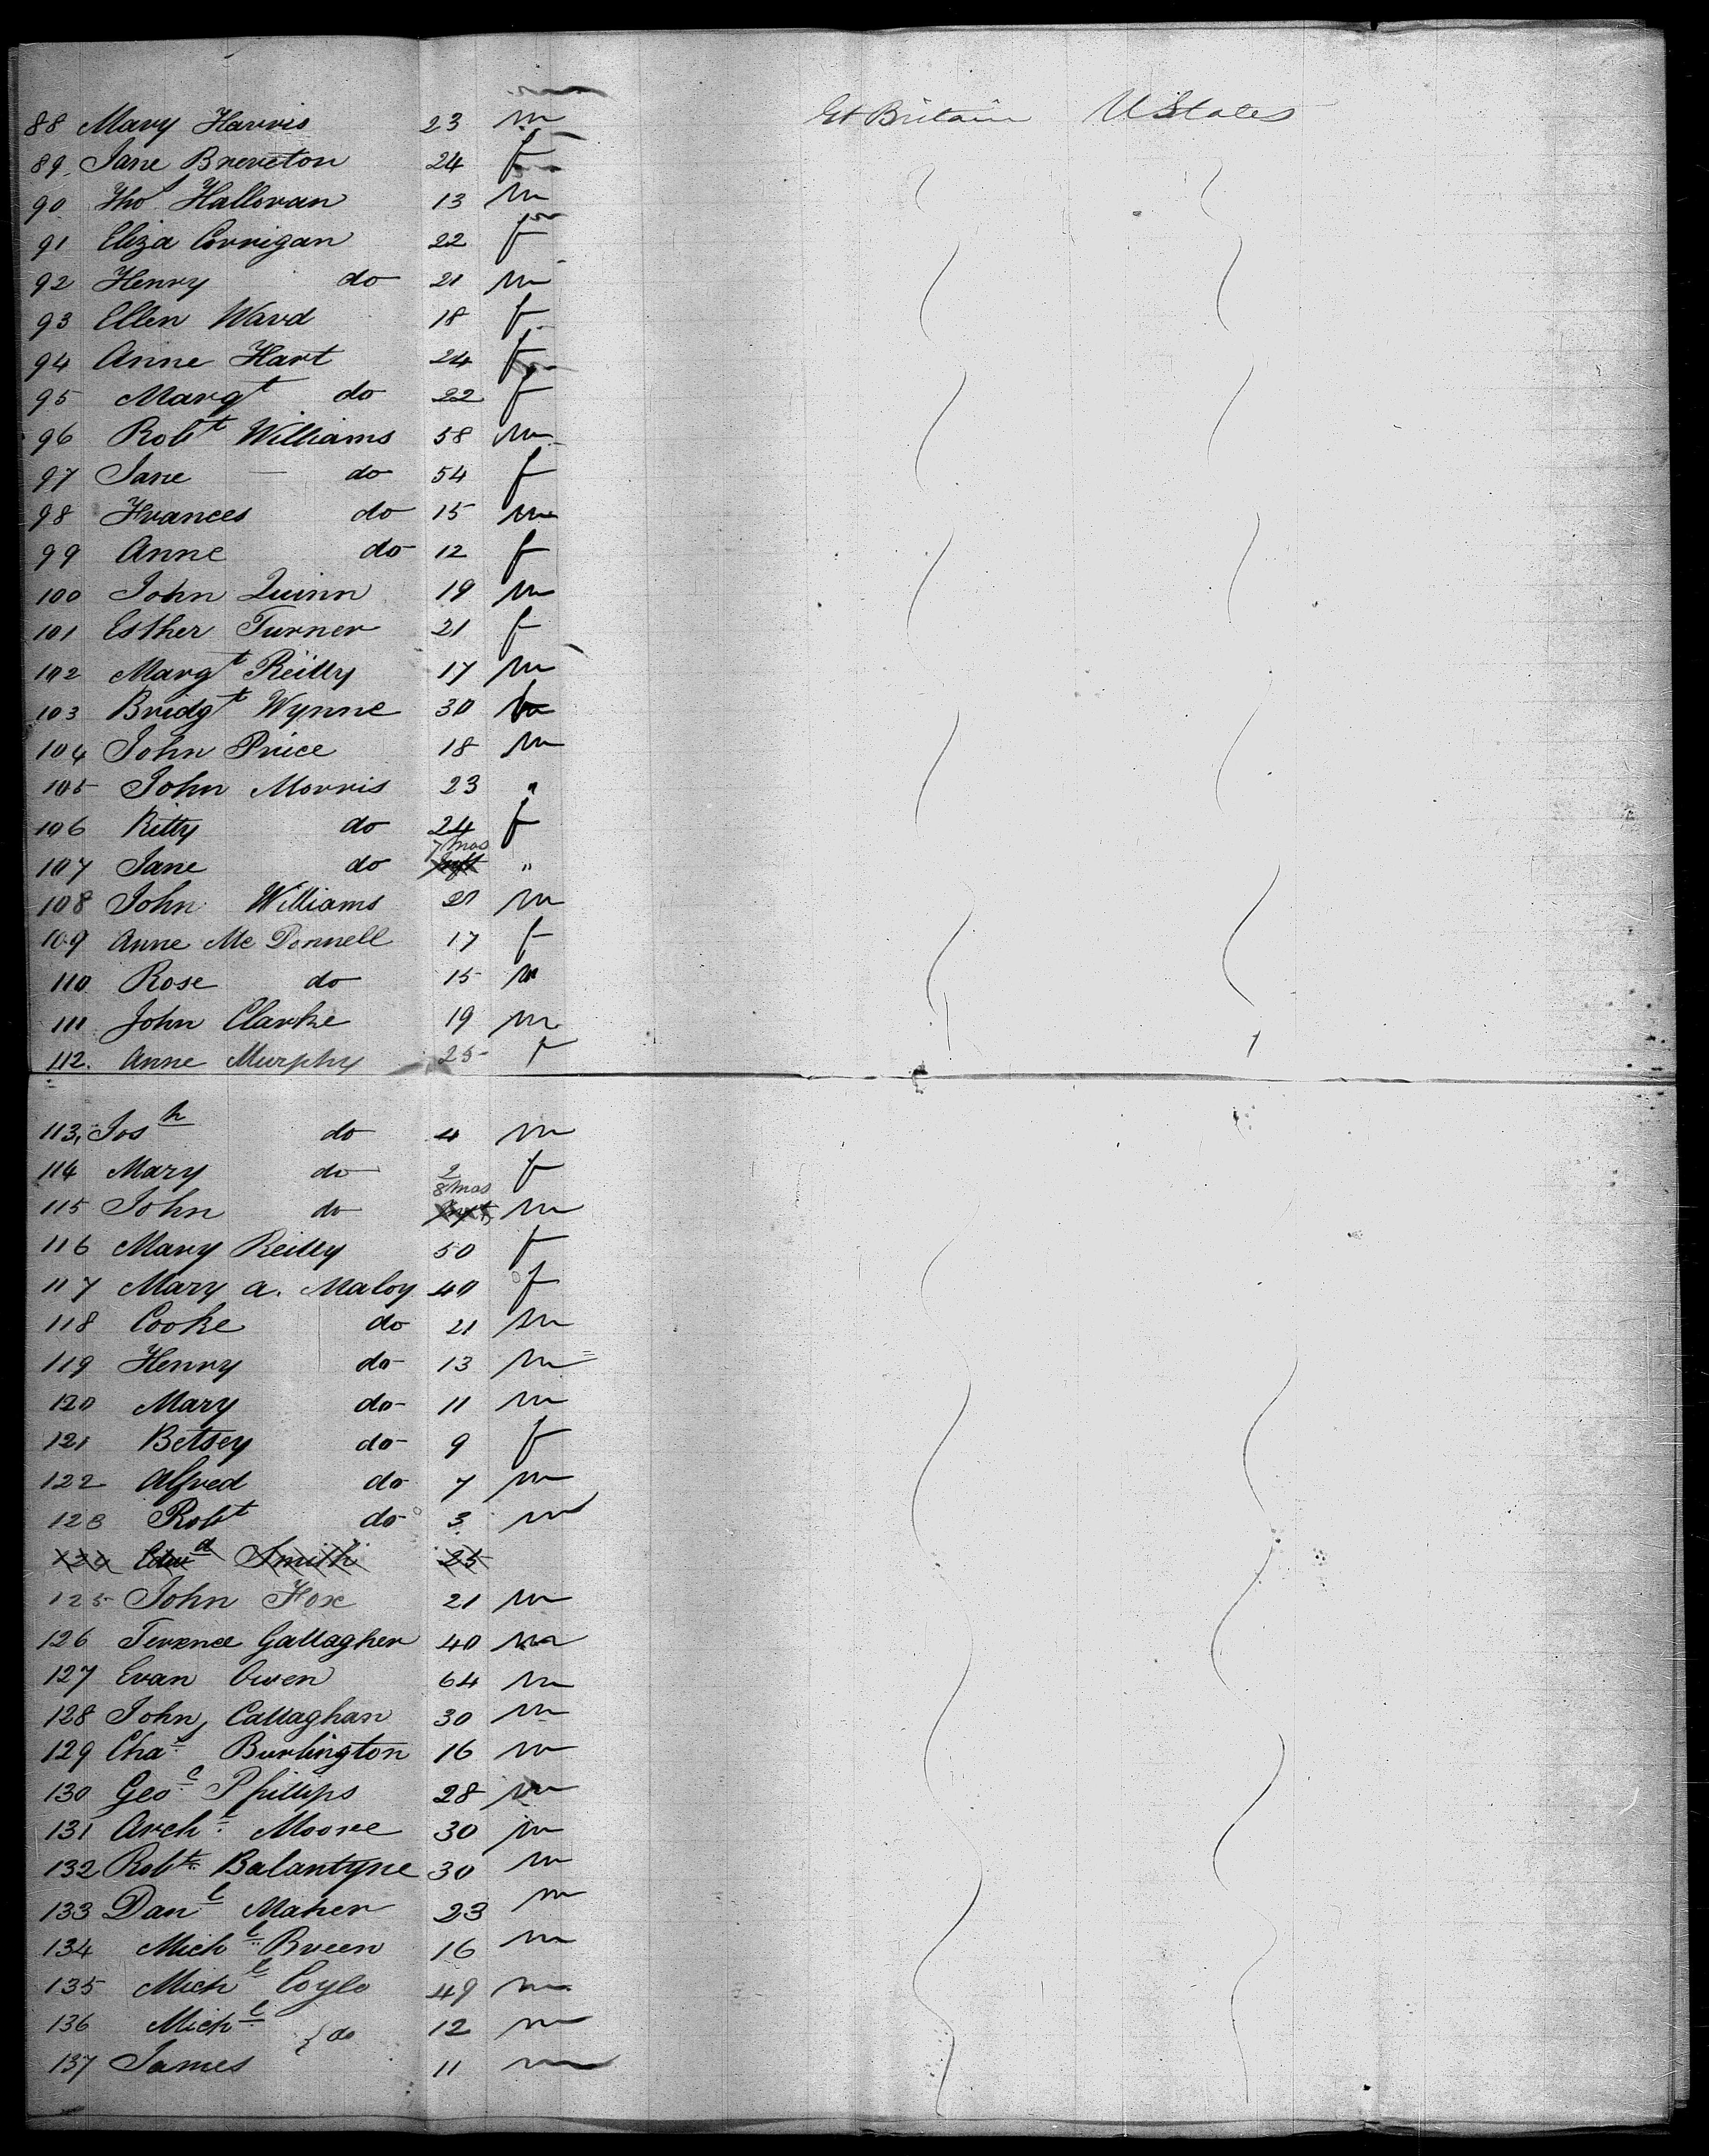 88 Mary Harris 23 m Gt Britain U States
89. Jane Brereton 24 f
90 Thos Halloran 13 m
91 Eliza Corrigan 22 f
92 Henry do 21 m
93 Ellen Ward 18 f
94 Anne Hart 24 f
95 Margt do 22 f
96 Robt Williams 58 m
97 Jane do 54 f
98 Frances do 15 m
99 Anne do 12 f
100 John Quinn 19 m
101 Esther Turner 21 f
102 Margt Reilly 17 m
103 Bridgt Wynne 30
104 John Price 18 m
105 John Morris 23 "
106 Kitty do 24 f
107 Jane do 7 mos Inft "
108 John Williams 21 m
109 Anne Mc Donnell 17 f
110 Rose do 15
111 John Clarke 19 m
112. Anne Murphy 25 f
113. Josh do 4 m
114 Mary do 2 f
115 John do 8 mos Inft m
116 Mary Reilly 50 f
117 Mary A. Maloy 40 f
118 Cooke do 21 m
119 Henry do 13 m
120 Mary do 11 m
121 Betsey do 9 f
122 Alfred do 7 m
123 Robt do 3 m
124 Edwd Smith 25
125 John Fox 21 m
126 Terence Gallagher 40 m
127 Evan Owen 64 m
128 John Callaghan 30 m
129 Chas Burlington 16 m
130 Geoe Phillips 28 m
131 Archd Moore 30 m
132 Robt Balantyne 30 m
133 Danl Maher 23 m
134 Michl Breen 16 m
135 Michl Coyle 49 m
136 Michl } do 12 m
137 James 11 m